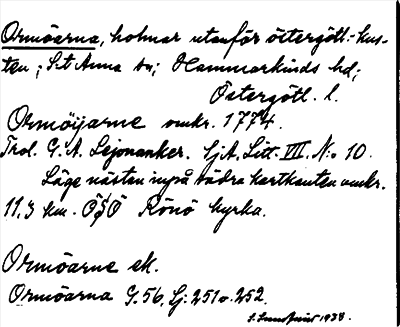 Ormöarna, holmar utanför östergötl.-kus-
ten; S:t Anna sn; Hammarkinds hd;
Östergötl. l.
Ormöijarne omkr. 1774.
Trol. G. A. Lejonanker. SjA, Litt. VIII. N:o 10.
Läge nästan inpå södra kartkanten omkr.
11,3 km. ÖSÖ Rönö kyrka.
Ormöarne ek.
Ormöarna G. 56, Sj: 251 o. 252.
1938.